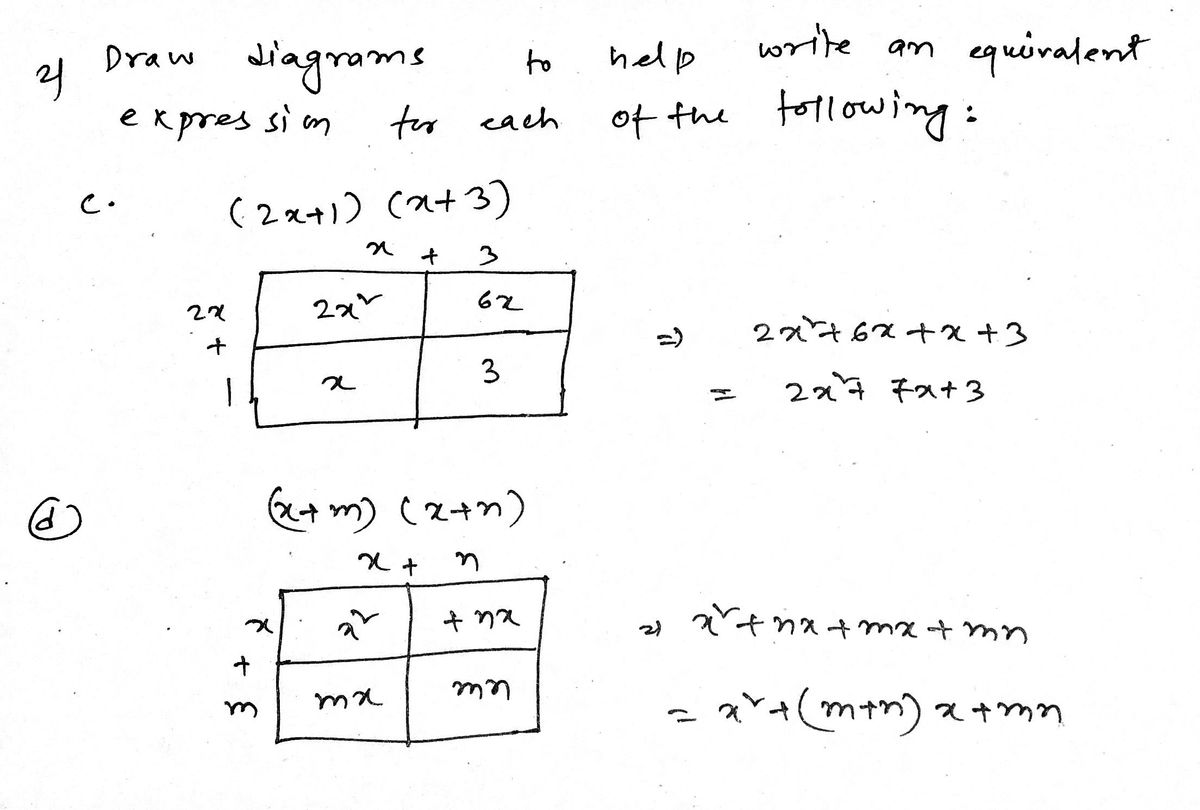 2) Draw diagrams to help write an equivalent
expression for each of the following:
c. (2x+1) (x+3)
x + 3
2x 2x² 6x
+
⇒ 2x²+6x+x+3
1 x 3
= 2x²+7x+3
(d) (x+m) (x+n)
x + n
x x² +nx ⇒ x²+nx+mx+mn
+
m mx mn
= x²+(m+n)x+mn